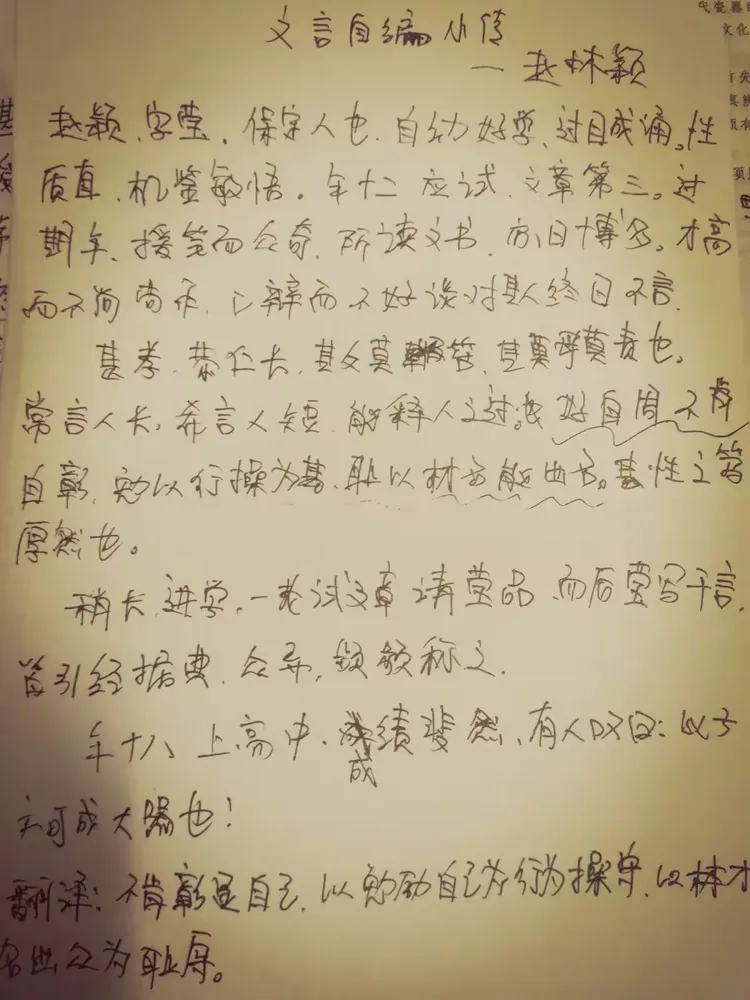 文言自编小传
一赵林颖
赵颖,字莹,保定人也,自幼好学,过目成诵。性
质直,机鉴敏悟。年十二应试,文章第三。过
期年,援笔而众奇,所读文书,亦日博多。才高
而不尚苟作,口辩而不好谈对,其人终日不言。
甚孝,恭仁长,其父莫笞,其母莫责也。
常言人长,希言人短,能释人之过。好自周,不肯
自彰,勉以行操为基,耻以材能出名。其性之笃
厚然也。
稍长,进学,一老试文章请莹品,而后莹写千言,
皆引经据典,众异,频频称之。
年十八,上高中,成绩斐然,有人叹曰:此子
亦可成大器也!
翻译:不肯彰显自己,以勉励自己为行为操守,以林才
名出众为耻辱。
甚
代瓷器
文化
首先
项